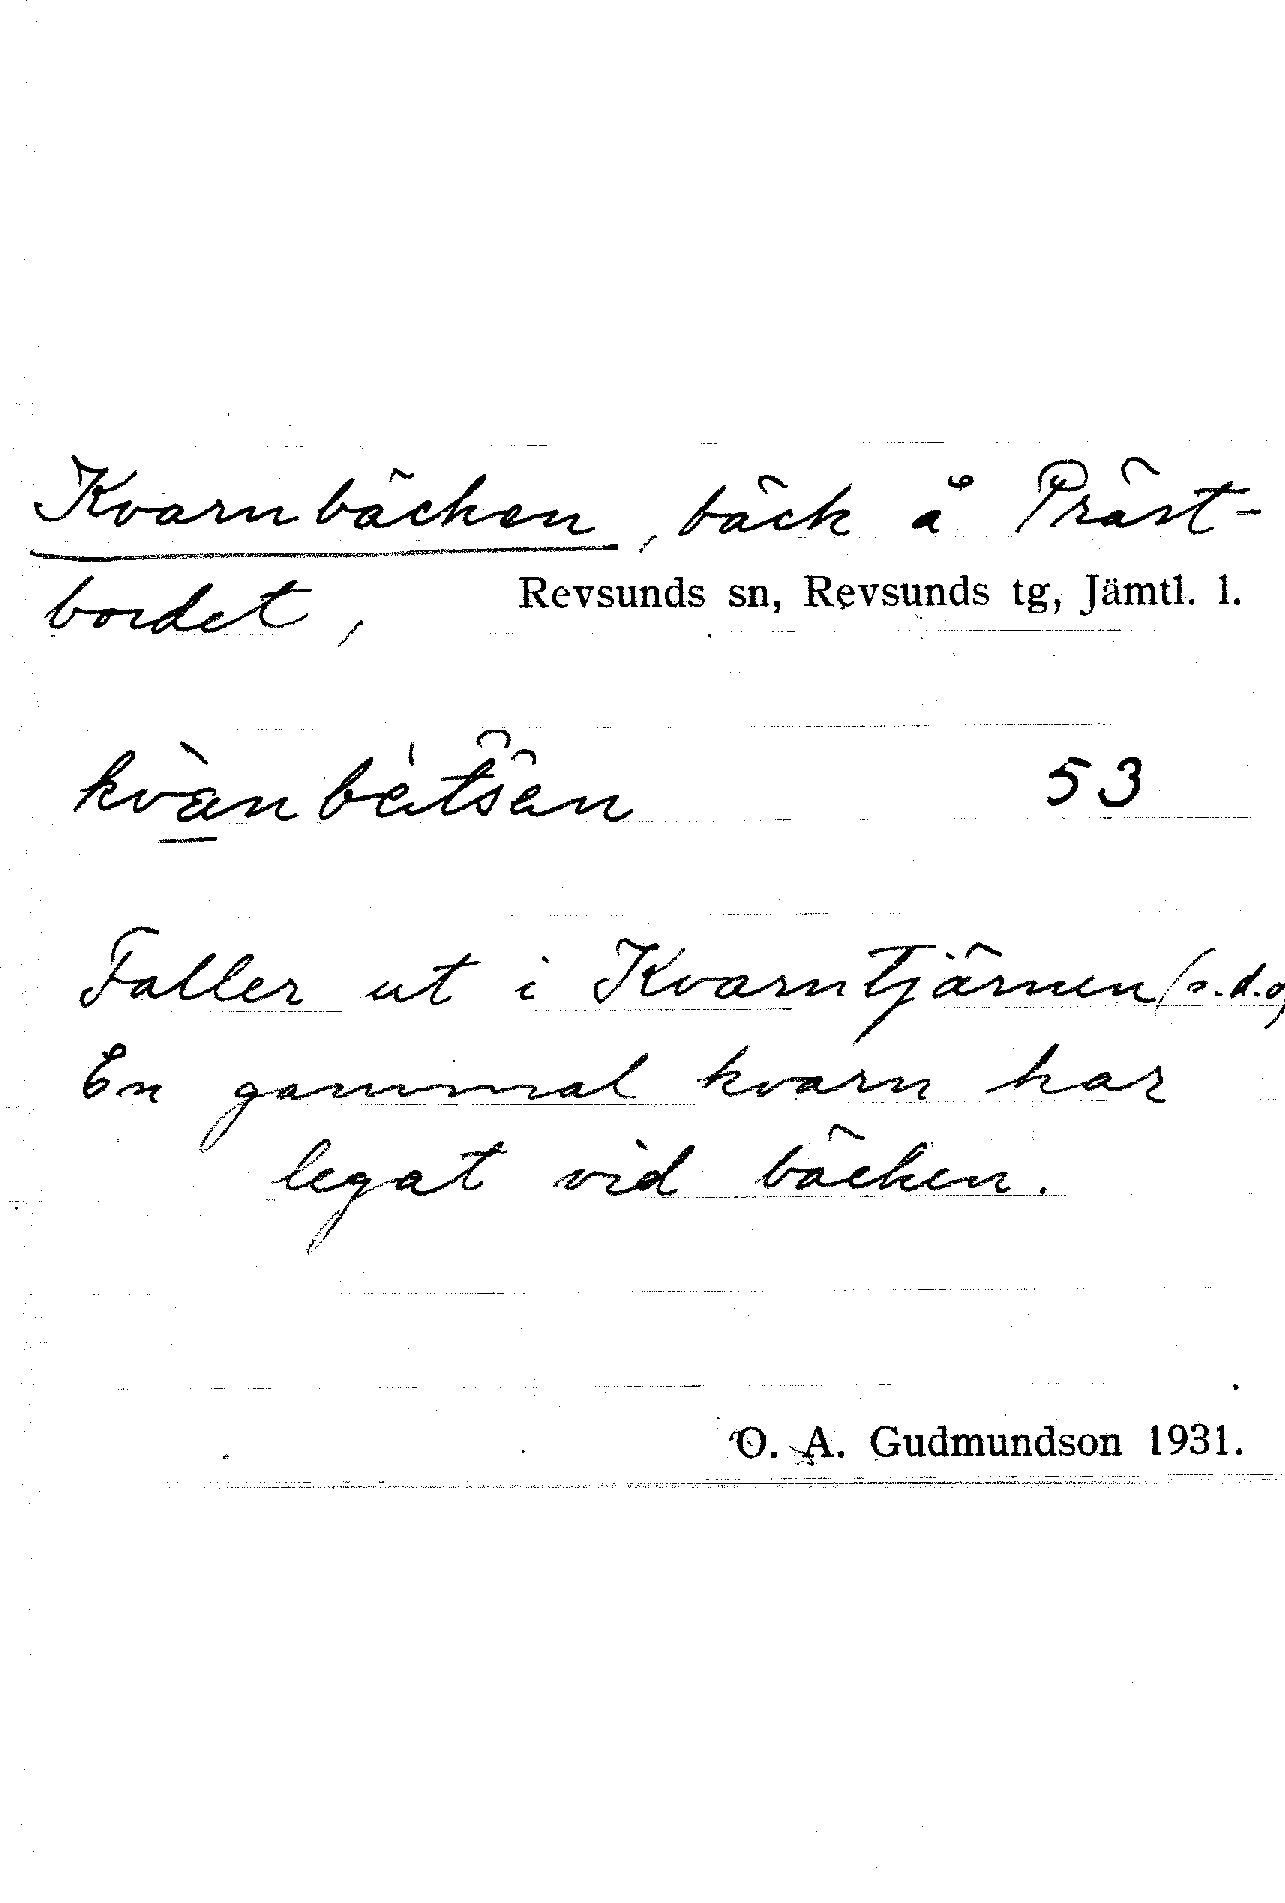 Kvarnbäcken, bäck å Präst-
bordet, Revsunds sn, Revsunds tg, Jämtl. l.
53
Faller ut i Kvarntjärnen (s.d.o)
En gammal kvarn har
legat vid bäcken.
O. A. Gudmundson 1931.